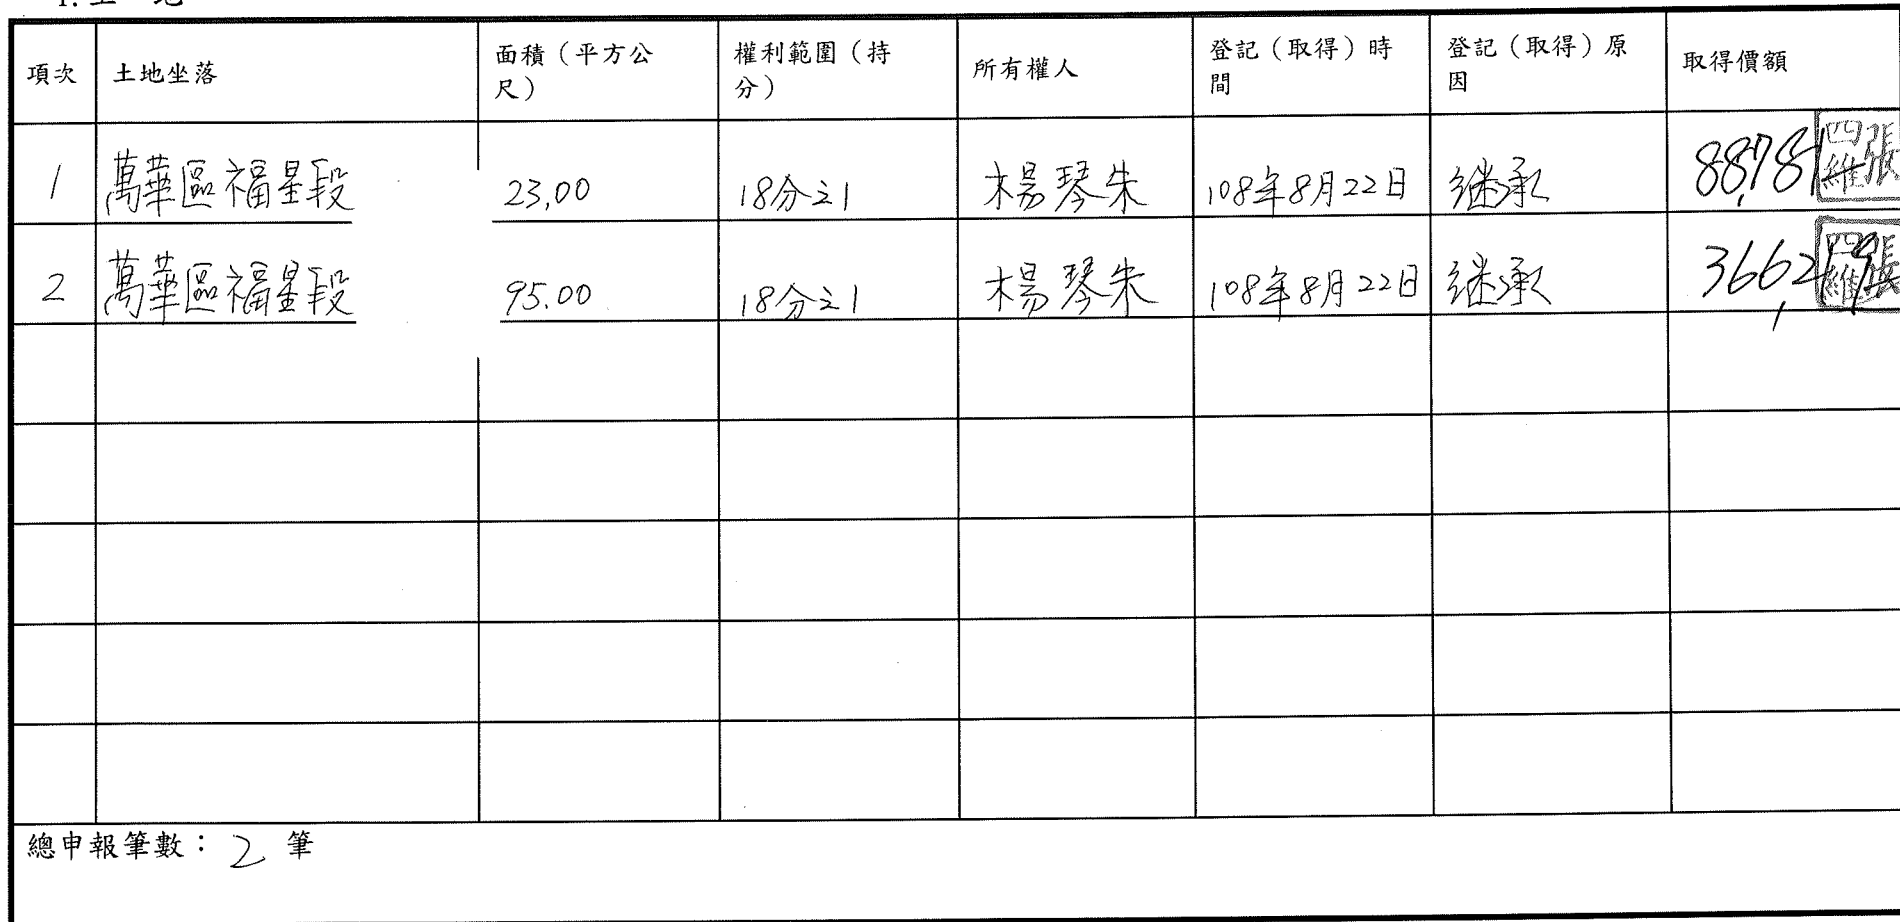 項次 土地坐落 面積（平方公尺） 權利範圍（持分） 所有權人 登記（取得）時間 登記（取得）原因 取得價額
1 萬華區福星段 23.00 18分之1 楊琴朱 108年8月22日 继承 四維張
2 萬華區福星段 95.00 18分之1 楊琴朱 108年8月22日 继承 四維張
總申報筆數：2 筆